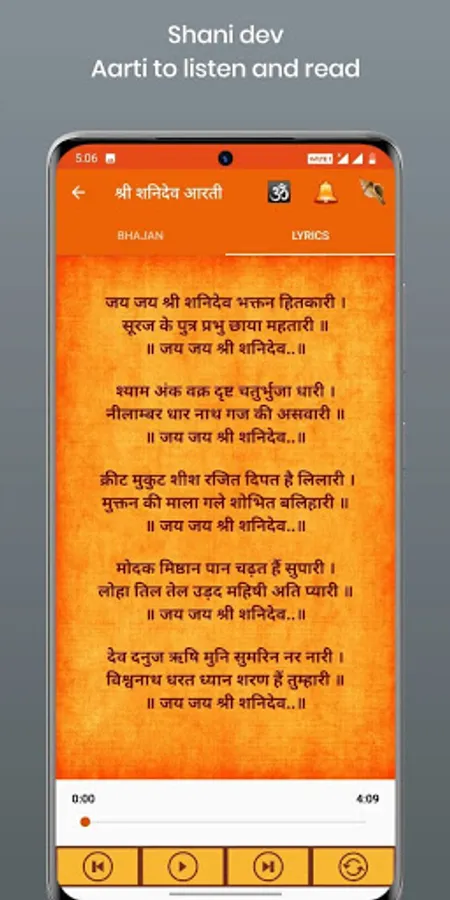 Shani dev
Aarti to listen and read
5.06
श्री शनिदेव आरती
ॐ
BHAJAN
LYRICS
जय जय श्री शनिदेव भक्तन हितकारी ।
सूरज के पुत्र प्रभु छाया महतारी ॥
॥ जय जय श्री शनिदेव..॥
श्याम अंक वक्र दृष्ट चतुर्भुजा धारी ।
नीलाम्बर धार नाथ गज की असवारी ॥
॥ जय जय श्री शनिदेव..॥
क्रीट मुकुट शीश रजित दिपत है लिलारी ।
मुक्तन की माला गले शोभित बलिहारी ॥
॥ जय जय श्री शनिदेव..॥
मोदक मिष्ठान पान चढ़त हैं सुपारी ।
लोहा तिल तेल उड़द महिषी अति प्यारी ॥
॥ जय जय श्री शनिदेव..॥
देव दनुज ऋषि मुनि सुमरिन नर नारी ।
विश्वनाथ धरत ध्यान शरण हैं तुम्हारी ॥
॥ जय जय श्री शनिदेव..॥
0:00
4:09